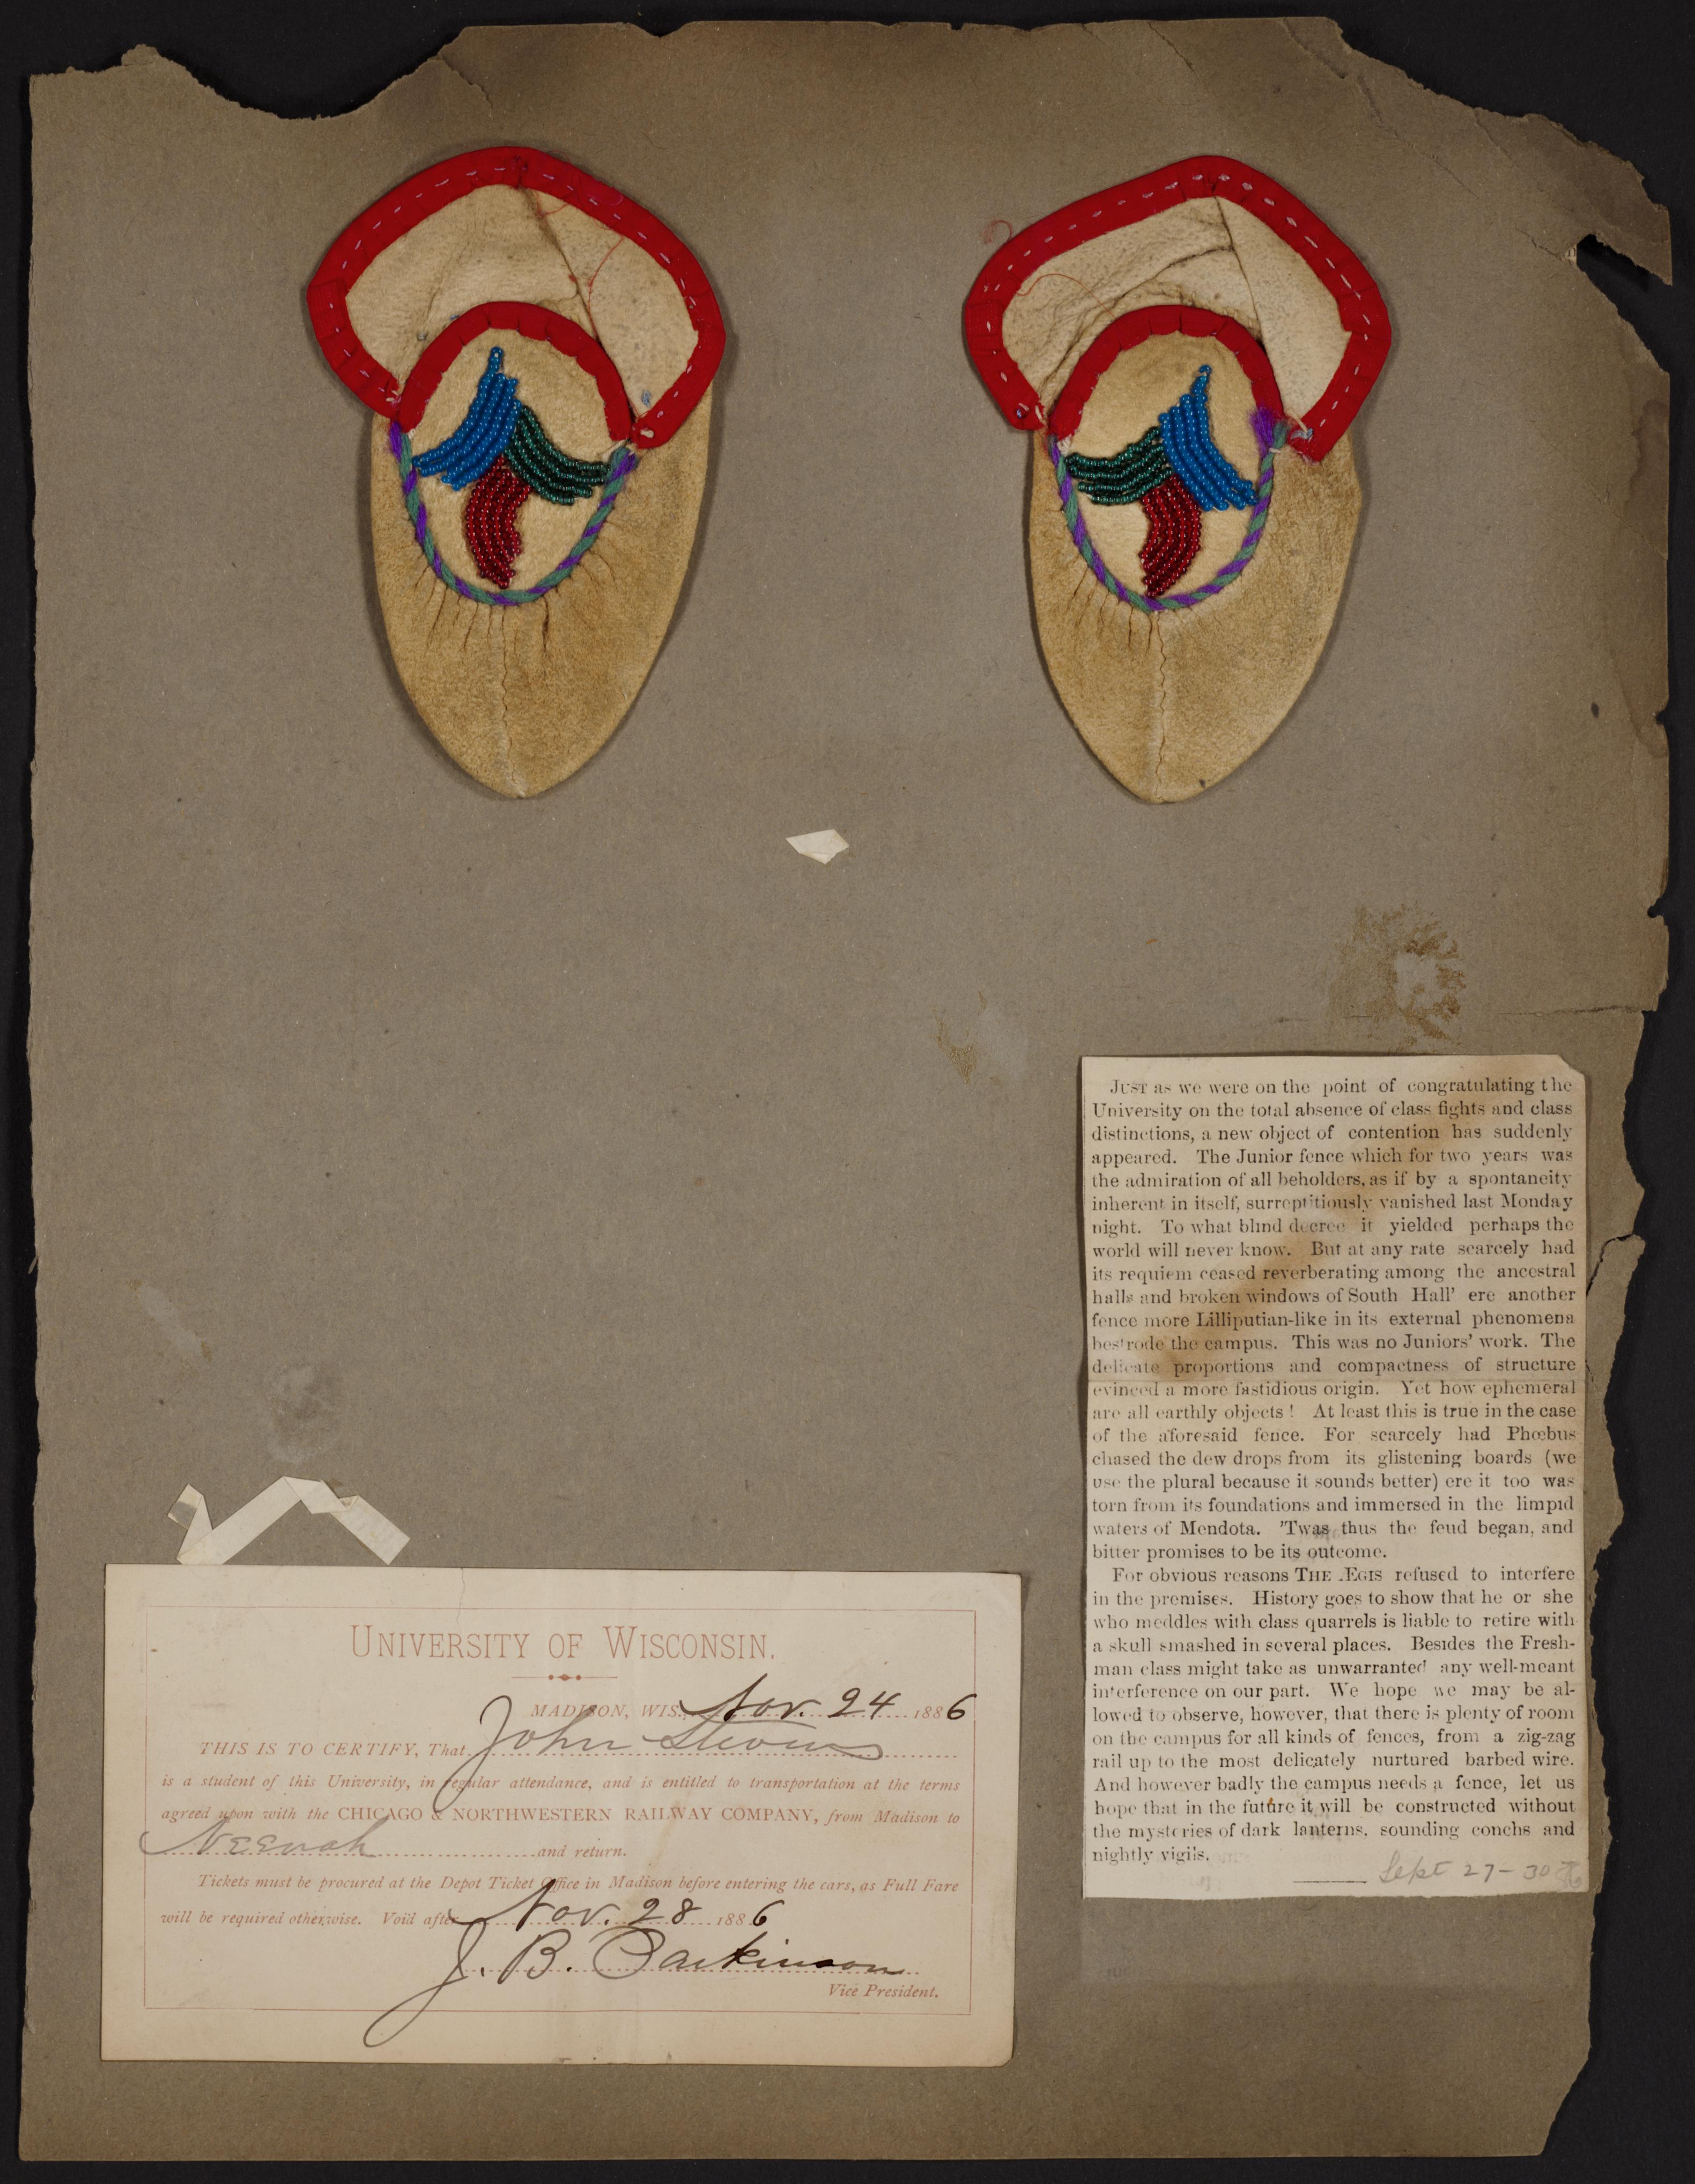 UNIVERSITY OF WISCONSIN.
MADISON, WIS., Nov. 24 1886
THIS IS TO CERTIFY, That John Stevens
is a student of this University, in regular attendance, and is entitled to transportation at the terms
agreed upon with the CHICAGO & NORTHWESTERN RAILWAY COMPANY, from Madison to
Neenah and return.
Tickets must be procured at the Depot Ticket Office in Madison before entering the cars, as Full Fare
will be required otherwise. Void after Nov. 28 1886
J. B. Parkinson
Vice President.
JUST as we were on the point of congratulating the
University on the total absence of class fights and class
distinctions, a new object of contention has suddenly
appeared. The Junior fence which for two years was
the admiration of all beholders, as if by a spontaneity
inherent in itself, surreptitiously vanished last Monday
night. To what blind decree it yielded perhaps the
world will never know. But at any rate scarcely had
its requiem ceased reverberating among the ancestral
halls and broken windows of South Hall' ere another
fence more Lilliputian-like in its external phenomena
bestrode the campus. This was no Juniors' work. The
delicate proportions and compactness of structure
evinced a more fastidious origin. Yet how ephemeral
are all earthly objects! At least this is true in the case
of the aforesaid fence. For scarcely had Phœbus
chased the dew drops from its glistening boards (we
use the plural because it sounds better) ere it too was
torn from its foundations and immersed in the limpid
waters of Mendota. 'Twas thus the feud began, and
bitter promises to be its outcome.
For obvious reasons THE ÆGIS refused to interfere
in the premises. History goes to show that he or she
who meddles with class quarrels is liable to retire with
a skull smashed in several places. Besides the Fresh-
man class might take as unwarranted any well-meant
interference on our part. We hope we may be al-
lowed to observe, however, that there is plenty of room
on the campus for all kinds of fences, from a zig-zag
rail up to the most delicately nurtured barbed wire.
And however badly the campus needs a fence, let us
hope that in the future it will be constructed without
the mysteries of dark lanterns, sounding conchs and
nightly vigils.
Sept 27-30